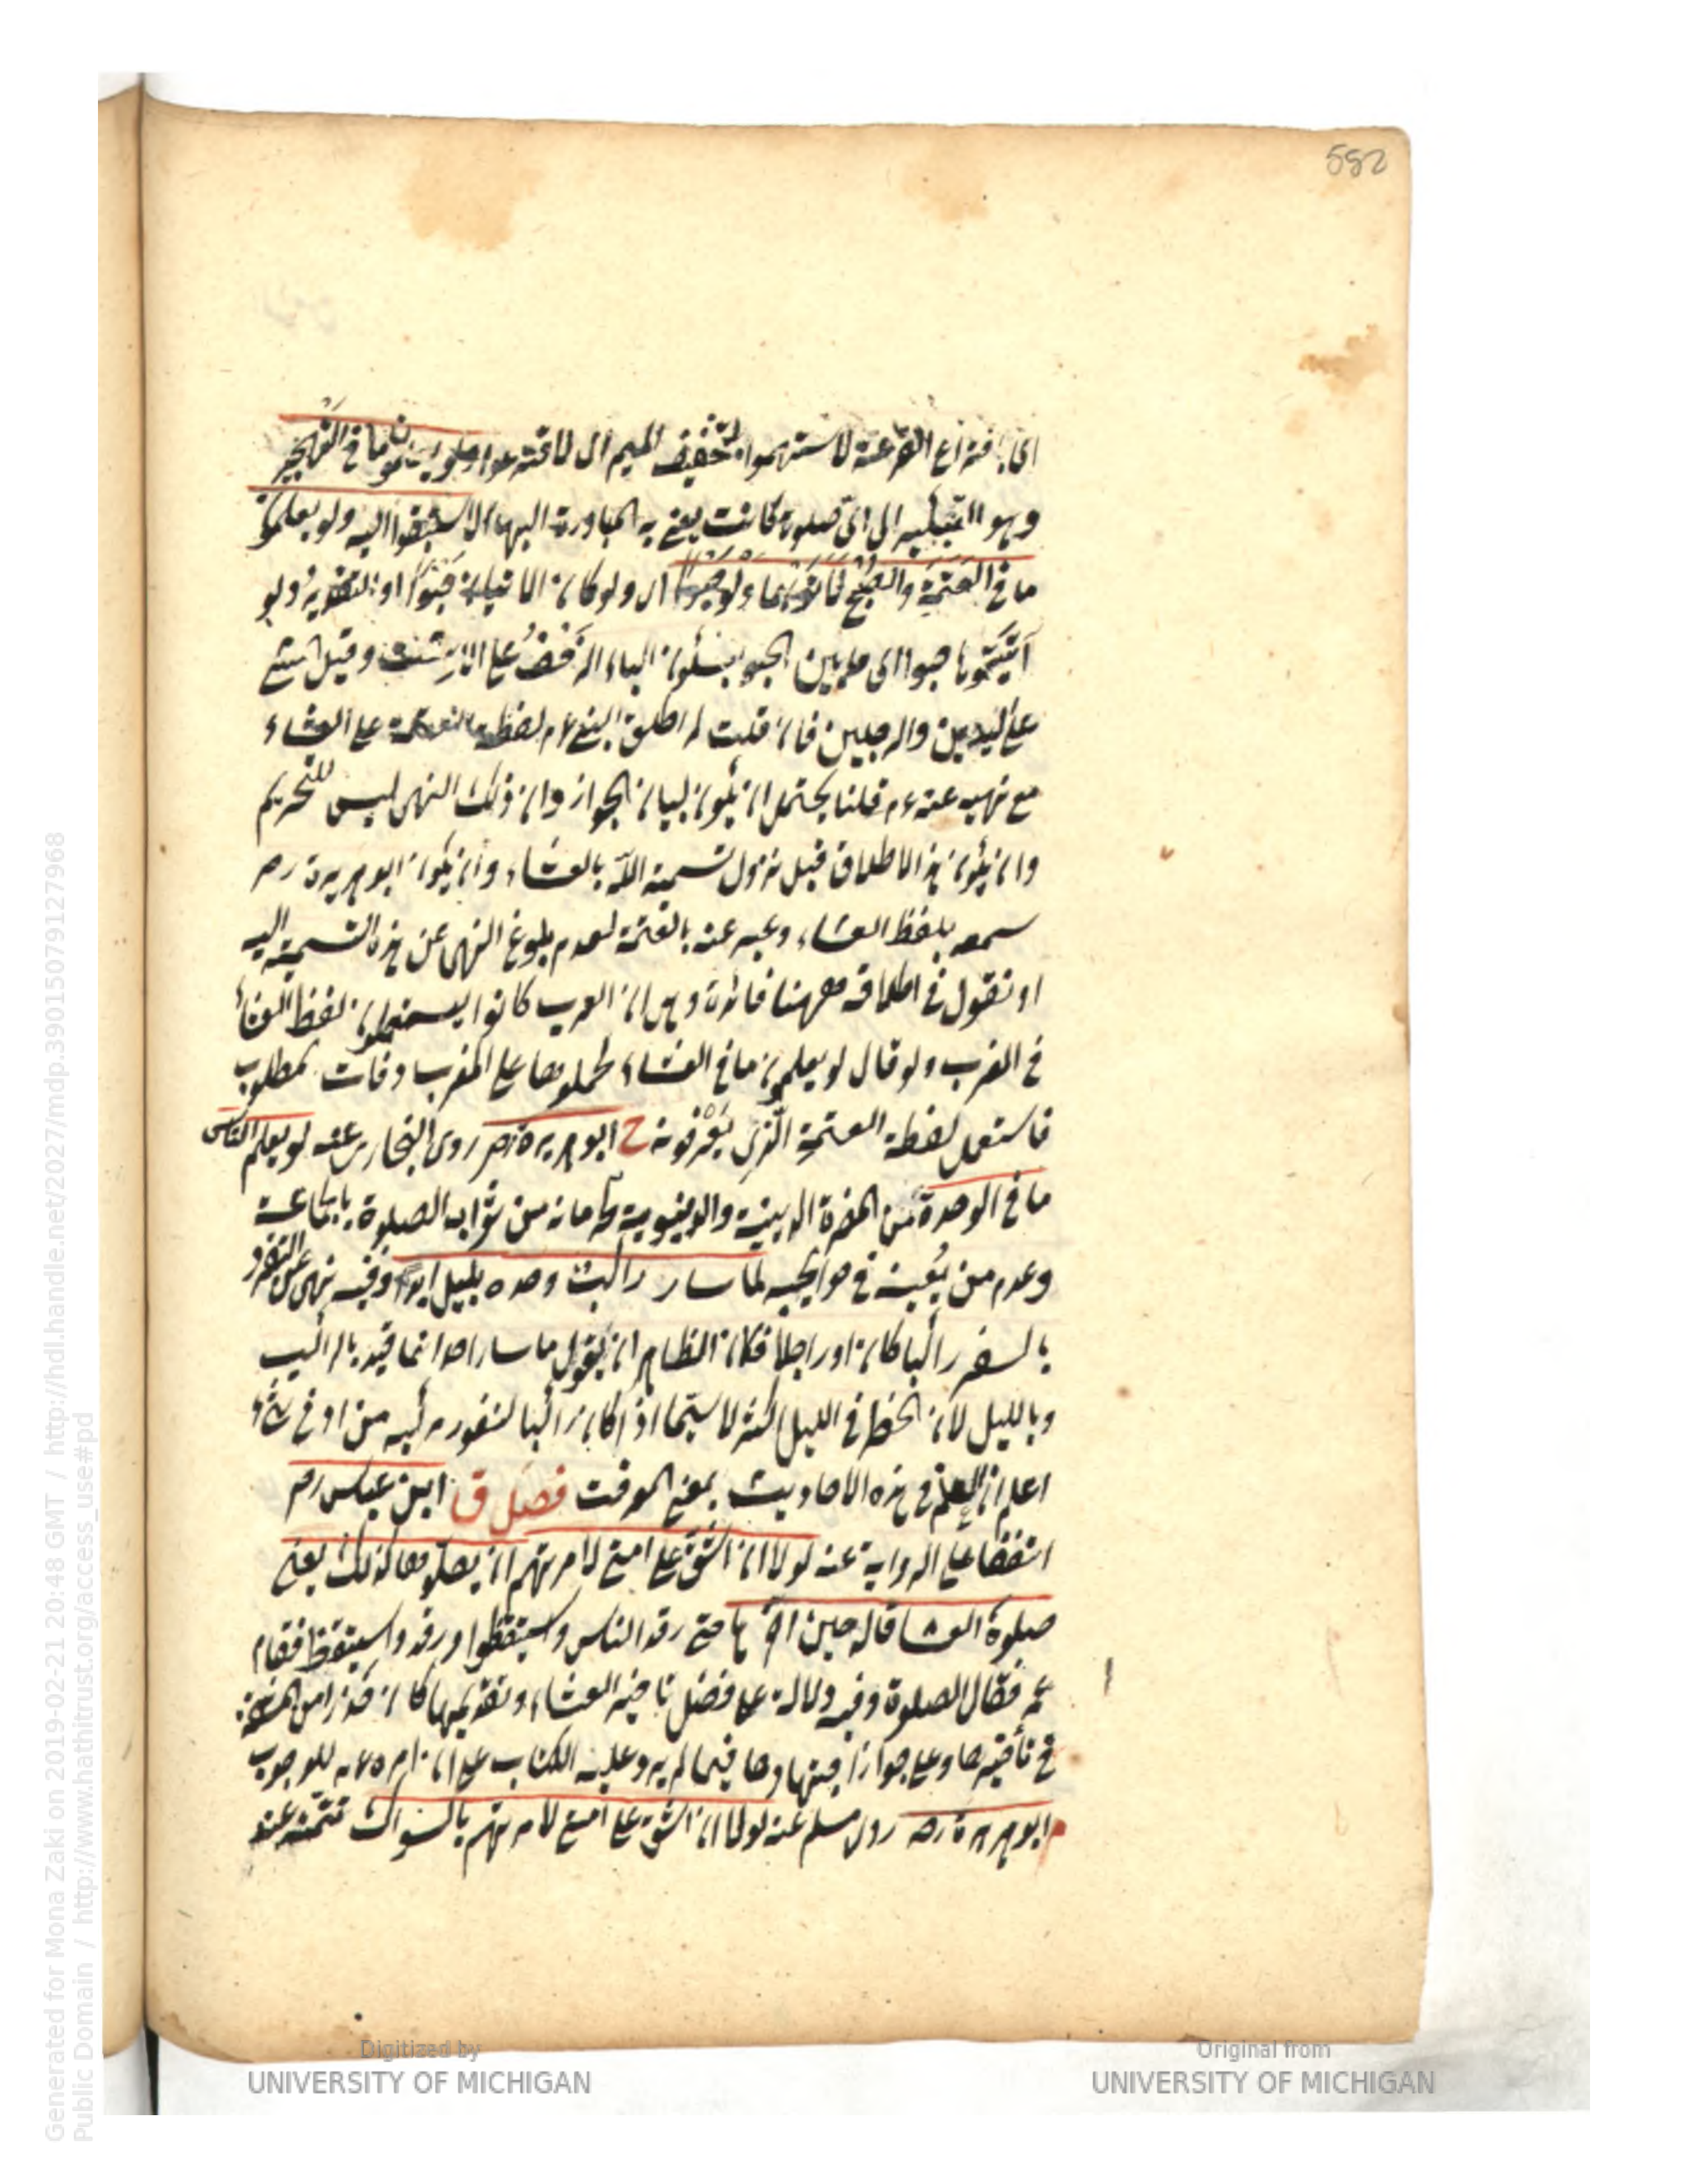 582
اى باقتراع القرعة لاستهموا بتخفيف الميم اى لاقترعوا ولو يعلمون ما في التهجير
وهو التبكير الى اى صلوة كانت يعنى به المبادرة اليها لاستبقوا اليه ولو يعلمون
ما في العتمة والصبح لأتوهما ولو حبوا اى ولو كان الاتيان حبوا او التقدير ولو
أتيتموها حبوا اى حابين الحبو بسكون الباء الزحف على الاست وقيل المشي
على اليدين والرجلين فان قلت لم اطلق النبى ءم لفظ العتمة على العشاء
مع نهيه عنه ءم قلنا يحتمل ان يكون لبيان الجواز وان ذلك النهى ليس للتحريم
وان يكون هذا الاطلاق قبل نزول تسمية الله بالعشاء وان يكون ابو هريرة رضه
سمعه بلفظ العشاء وعبر عنه بالعتمة لعدم بلوغ النهى عن هذه التسمية اليه
او نقول في اطلاقه ههنا فائدة وهى ان العرب كانوا يستعملون لفظ العشاء
في المغرب ولو قال لو يعلمون ما في العشاء لحملوها على المغرب وفات المطلوب
فاستعمل لفظة العتمة الذى يعرفونه خ ابو هريرة رضه روى البخارى عنه لو يعلم الناس
ما في الوحدة من المضرة الدينية والدنيوية كحرمانه من ثواب الصلوة بالجماعة
وعدم من يعينه في حوايجه لما سار راكب وحده بليل ابدا وفيه نهى عن التفرد
بالسفر راكبا كان او راجلا فكان الظاهر ان يقول ما سار احد انما قيد بالراكب
وبالليل لان الخطر في الليل اكثر لا سيما اذا كان راكبا لنفور مركبه من ادنى شئ
اعلم ان العلم في هذه الاحاديث بمعنى المعرفت فصل ق ابن عباس رضه
اتفقا على الرواية عنه لولا ان اشق على امتى لامرتهم ان يصلوها كذلك يعنى
صلوة العشا قاله حين اخرها حتى رقد الناس واستيقظوا ورقدوا واستيقظوا فقام
عمر فقال الصلوة وفيه دلالة على فضل تاخير العشاء وتقديمها كان حذرا من المشقة
في تأخيرها وعلى جواز اجتهاده فيما لم يرد عليه الكتاب على ان امره ءم للوجوب
م ابو هريرة رضه روى مسلم عنه لولا ان اشق على امتى لامرتهم بالسواك تتمته عند
Digitized by
UNIVERSITY OF MICHIGAN
Original from
UNIVERSITY OF MICHIGAN
Generated for Mona Zaki on 2019-02-21 20:48 GMT / http://hdl.handle.net/2027/mdp.39015079127968
Public Domain / http://www.hathitrust.org/access_use#pd